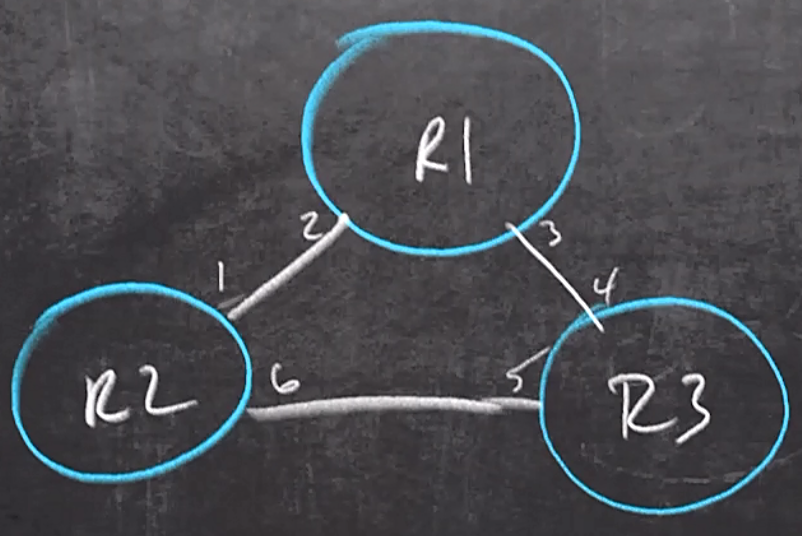 R1
2
3
1
4
R2
6
5
R3